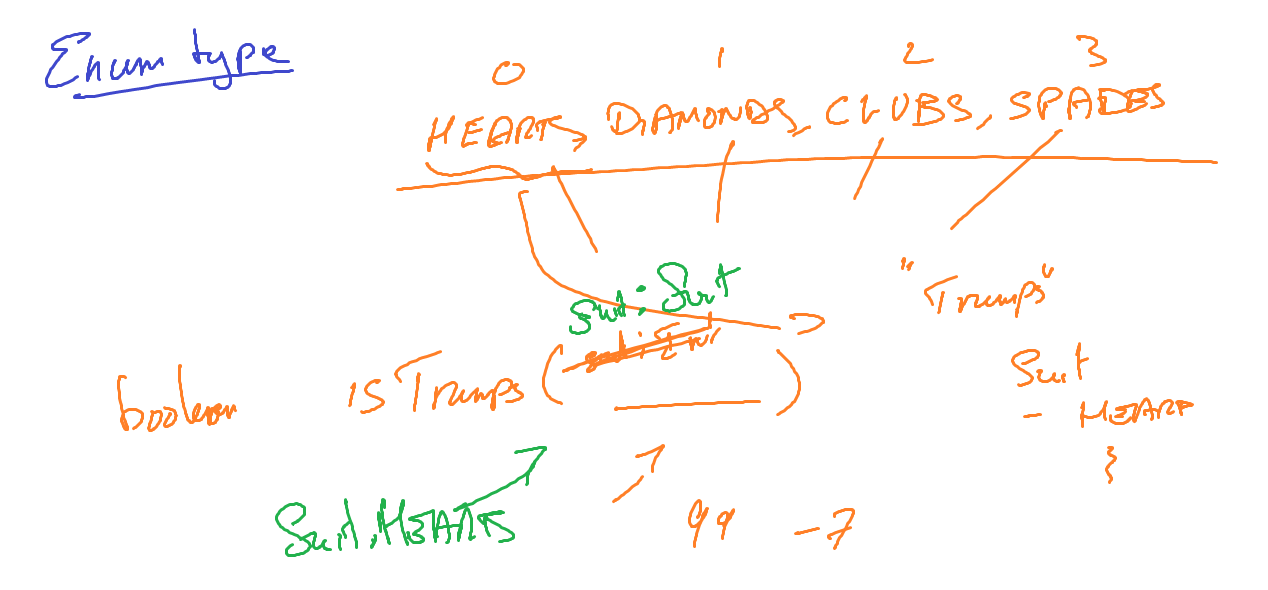 Enum type
0 1 2 3
HEARTS, DIAMONDS, CLUBS, SPADES
"Trumps"
suit: Suit
boolean isTrumps ( )
Suit
- HEART
}
Suit.HEARTS
99 -7